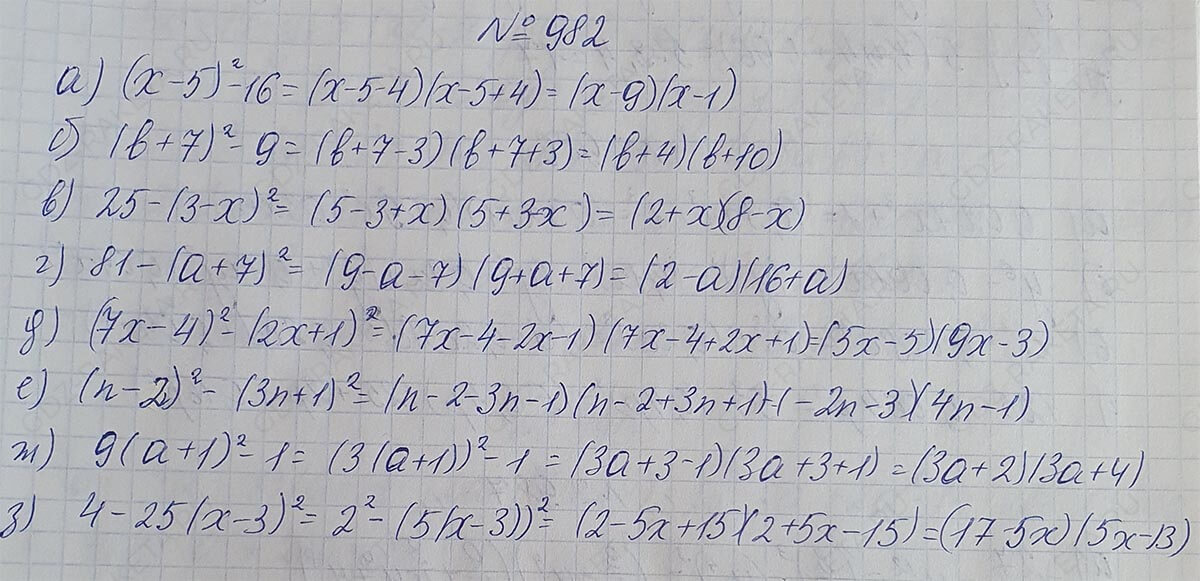 № 982
а) (x-5)²-16=(x-5-4)(x-5+4)=(x-9)(x-1)
б) (b+7)²-9=(b+7-3)(b+7+3)=(b+4)(b+10)
в) 25-(3-x)²=(5-3+x)(5+3-x)=(2+x)(8-x)
г) 81-(a+7)²=(9-a-7)(9+a+7)=(2-a)(16+a)
д) (7x-4)²-(2x+1)²=(7x-4-2x-1)(7x-4+2x+1)=(5x-5)(9x-3)
е) (n-2)²-(3n+1)²=(n-2-3n-1)(n-2+3n+1)=(-2n-3)(4n-1)
ж) 9(a+1)²-1=(3(a+1))²-1=(3a+3-1)(3a+3+1)=(3a+2)(3a+4)
з) 4-25(x-3)²=2²-(5(x-3))²=(2-5x+15)(2+5x-15)=(17-5x)(5x-13)